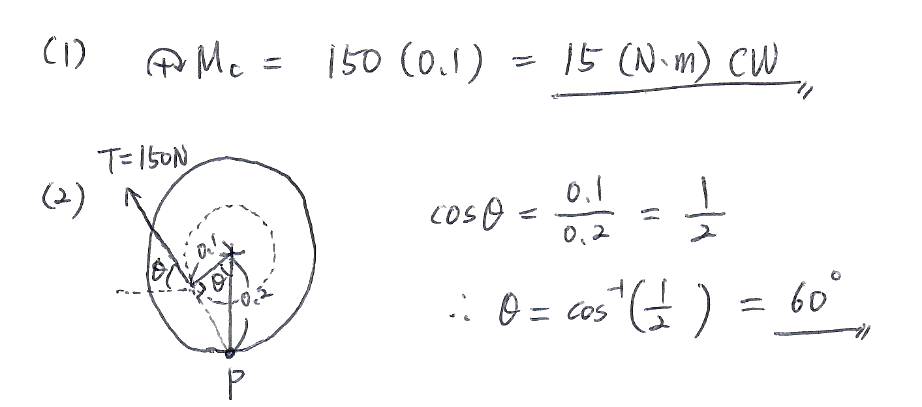 (1) ↻+ Mc = 150 (0.1) = 15 (N·m) CW
T=150N
(2)
θ
0.1
θ
0.2
P
cosθ = 0.1/0.2 = 1/2
∴ θ = cos⁻¹(1/2) = 60°